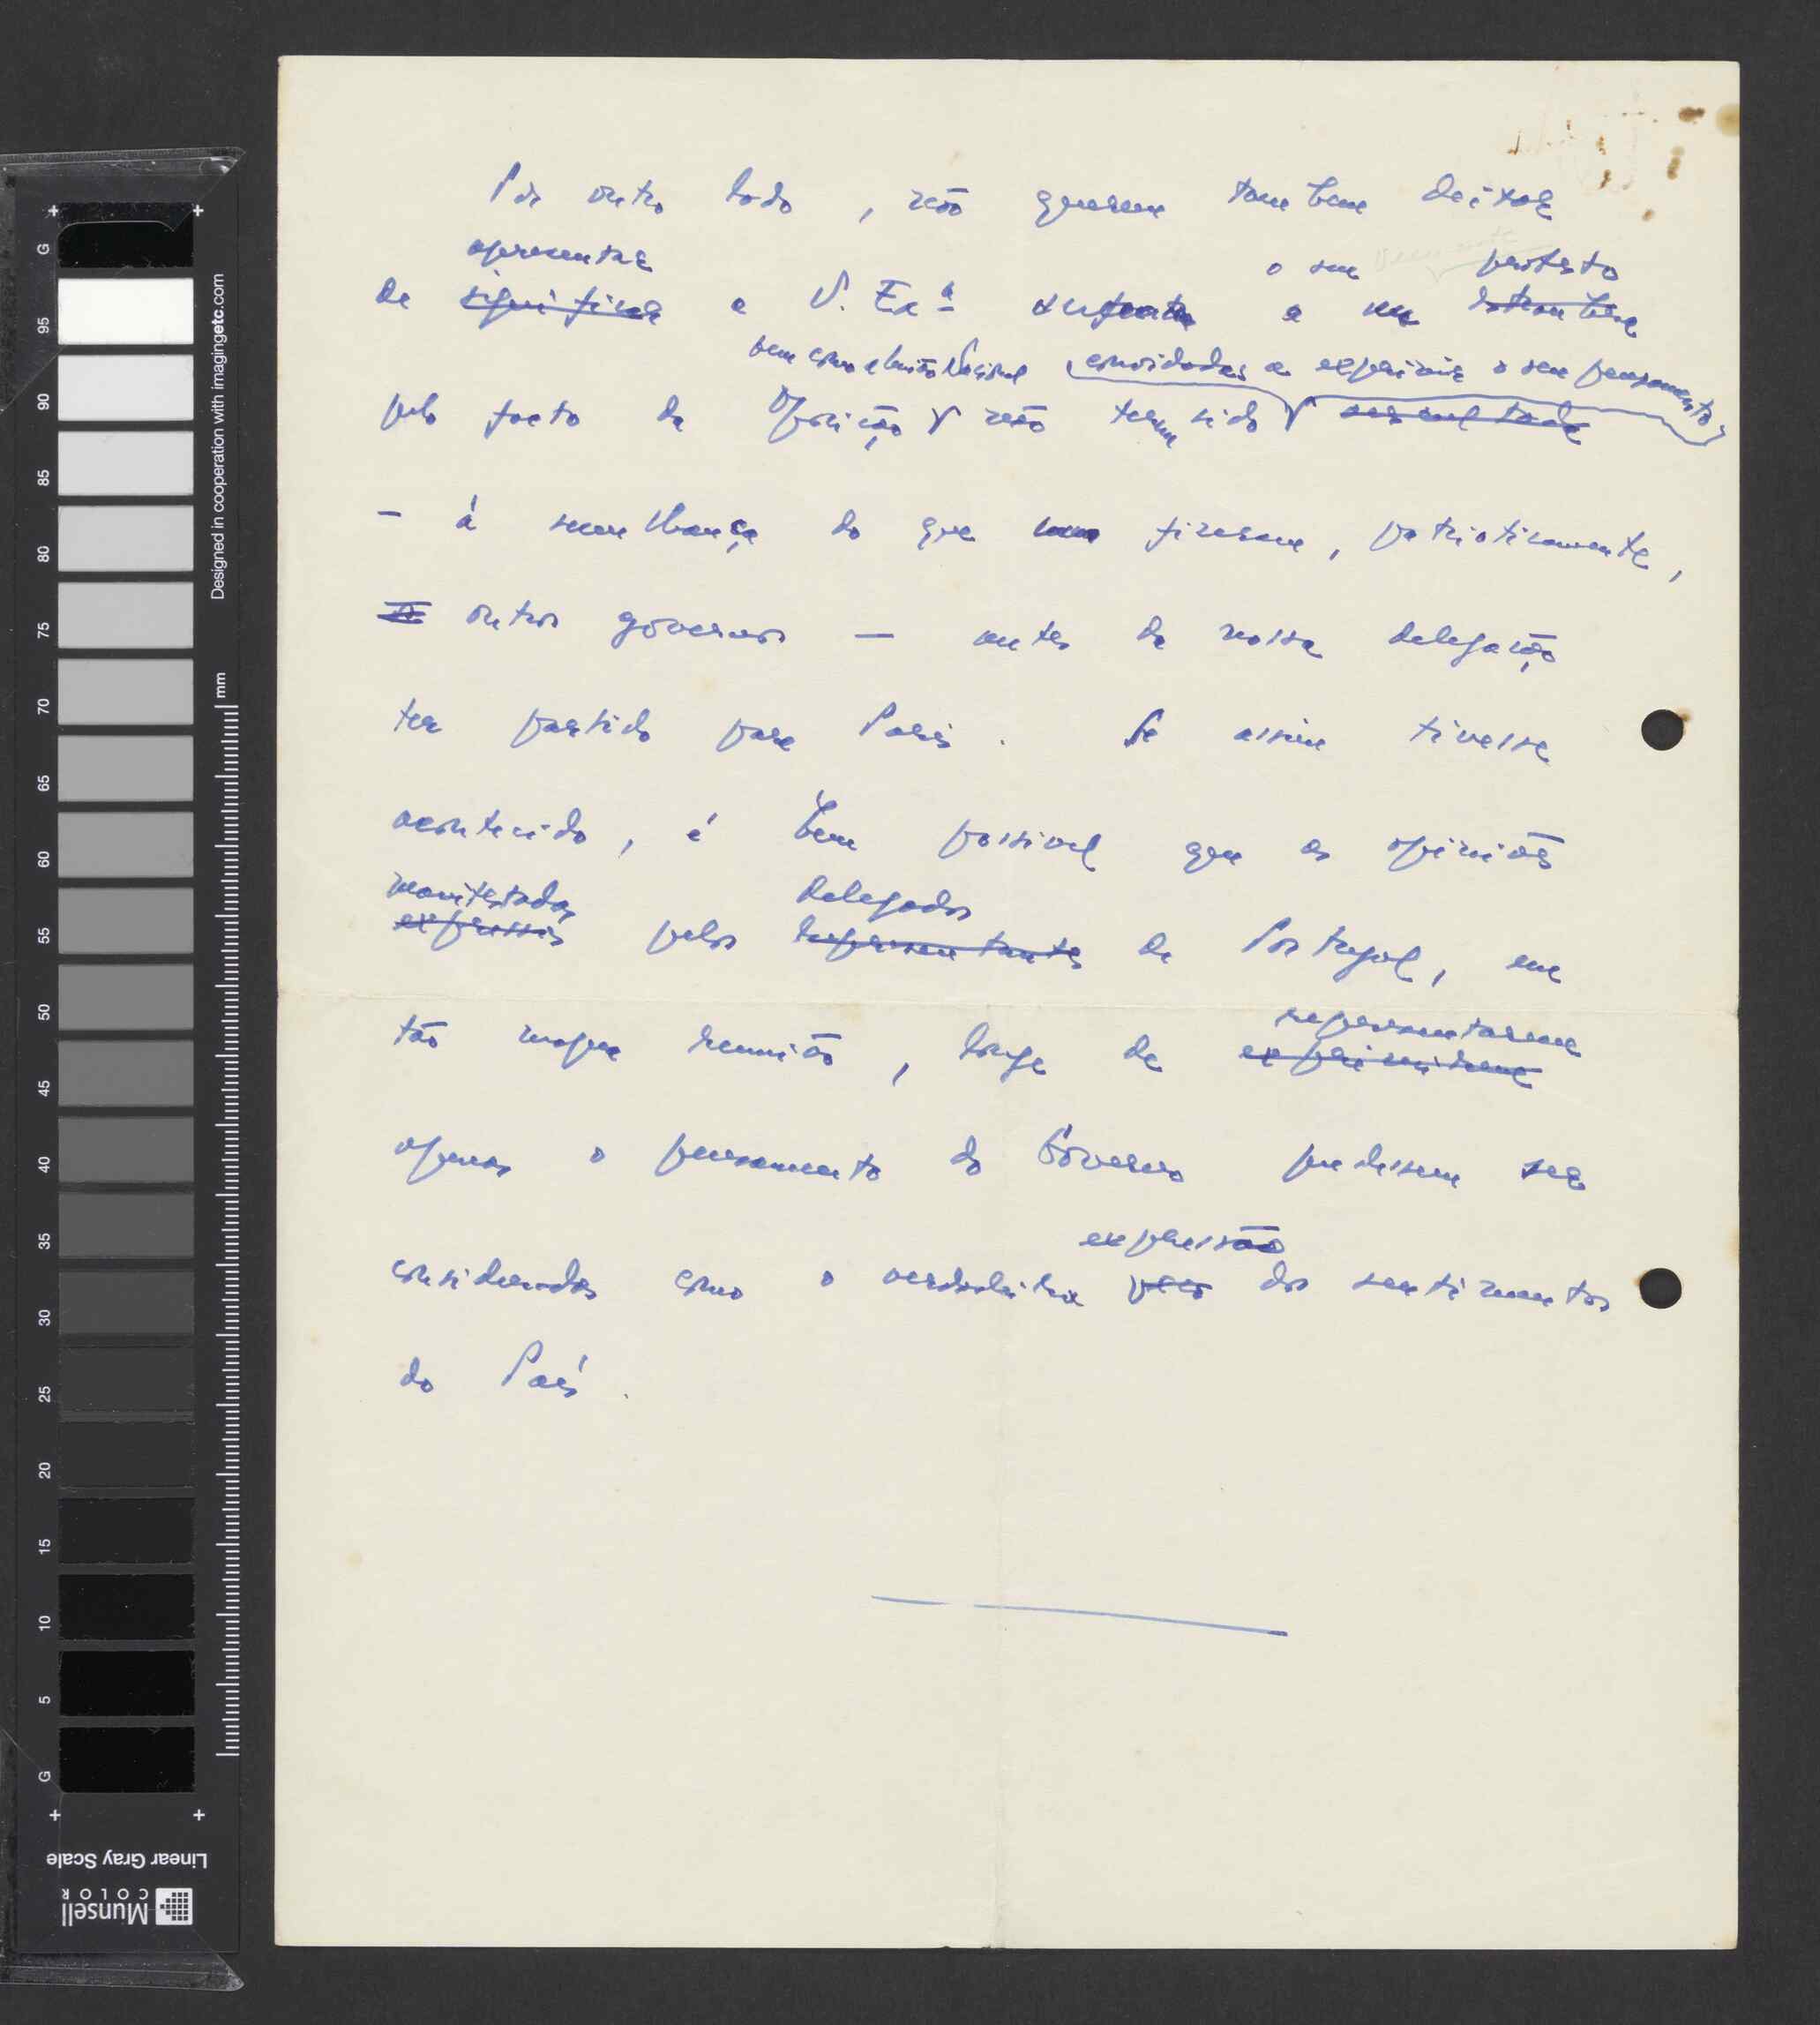 Por outro lado, não querem tambem deixar
apresentar o seu protesto
de significar a V. Exª a sua estranheza
bem como a União Nacional convidadas a exprimir o seu pensamento,
pelo facto da Oposição não terem sido consultada
- á semelhança do que fizeram, patrioticamente,
outros governos — antes da nossa delegação
ter partido para Paris. Se assim tivesse
acontecido, é bem possivel que as opiniões
manifestadas delegados
expressas pelos representantes de Portugal, em
tão magna reunião, longe de representarem
exprimirem
apenas o pensamento do Govêrno pudessem ser
expressão
consideradas como a verdadeira voz dos sentimentos
do País.
G
95
90
85
80
75
70
65
60
55
50
45
40
35
30
25
20
15
10
5
G
mm
Designed in cooperation with imagingetc.com
Linear Gray Scale
Munsell
COLOR